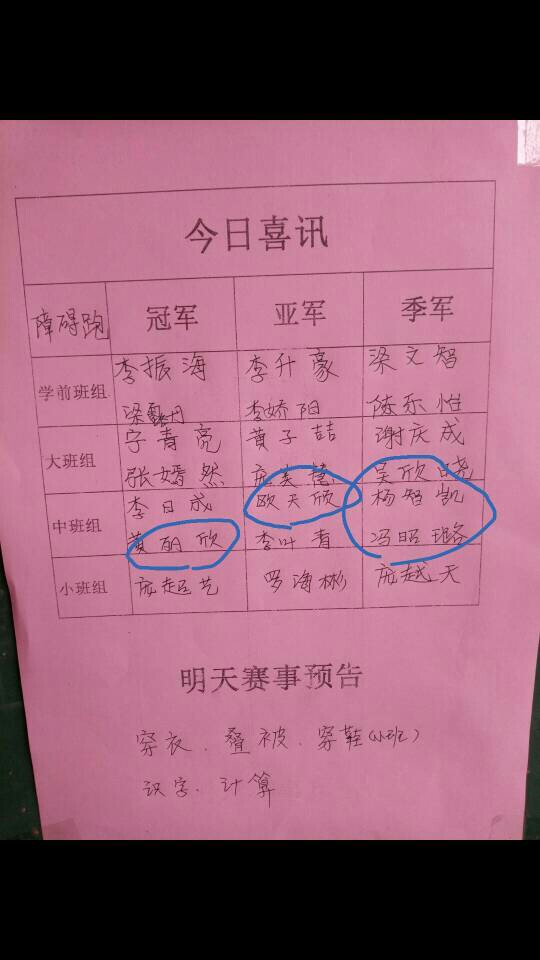 今日喜讯
障碍跑 冠军 亚军 季军
李振海 李升豪 梁文智
学前班组
李娇阳 陈乐怡
宁青亮 黄子喆 谢庆成
大班组
张嫣然 庞美慧 吴欣晓
李日成 欧天欣 杨智凯
中班组
黄丽欣 李叶青 冯昭璐
小班组 庞超艺 罗海彬 庞越天
明天赛事预告
穿衣、叠被、穿鞋(小班)
识字、计算